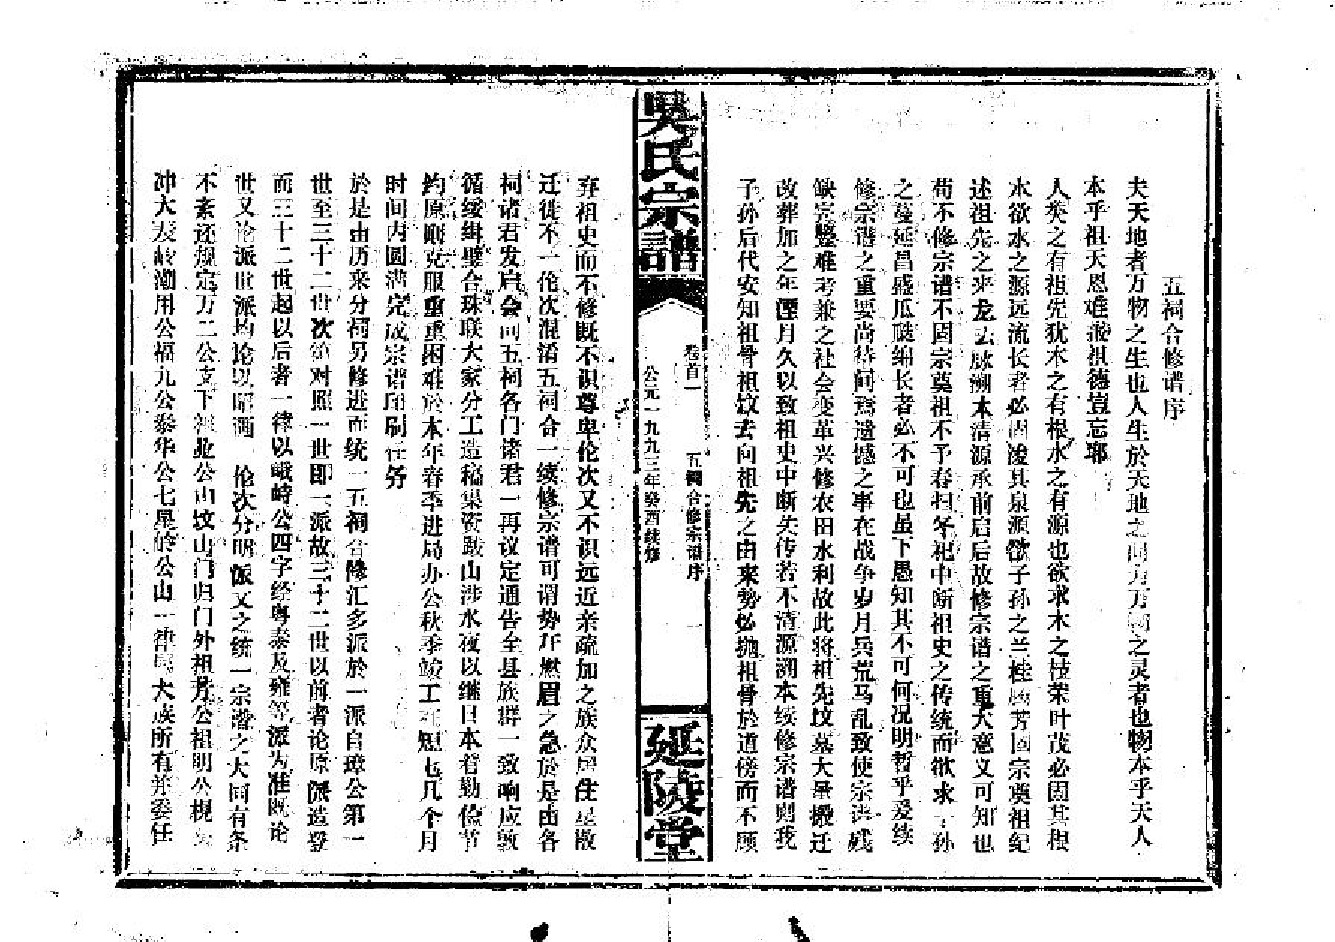 五祠合修谱序
夫天地者万物之生也人生於天地之间万万物之灵者也物本乎天人
本乎祖天恩难报祖德岂忘耶
人类之有祖先犹木之有根水之有源也欲求木之枝荣叶茂必固其根
水欲水之源远流长者必固浚其泉源欲子孙之兰桂腾芳固宗奠祖纪
述祖先之来龙去脉溯本清源承前启后故修宗谱之重大意义可知也
苟不修宗谱不固宗奠祖不予春扫冬祀中断祖史之传统而欲求子孙
之蔓延昌盛瓜瓞绵长者必不可也虽下愚知其不可何况明哲乎爰续
修宗谱之重要尚待问焉遗憾之事在战争岁月兵荒马乱致使宗谱残
缺完整难者兼之社会变革兴修农田水利故此将祖先坟墓大量搬迁
改葬加之年湮月久以致祖史中断失传若不清源溯本续修宗谱则我
子孙后代安知祖骨祖坟去向祖先之由来势必抛祖骨於道傍而不顾
吴氏宗譜
卷首一
五祠合修宗谱序
一
公元一九九三年癸酉续修
延陵堂
弃祖史而不修既不识尊卑伦次又不识远近亲疏加之族众居住星散
迁徙不一伦次混淆五祠合一续修宗谱可谓势在燃眉之急於是由各
祠诸君发启会同五祠各门诸君一再议定通告全县族群一致响应敦
循绥缉璧合珠联大家分工造稿集资跋山涉水夜以继日本着勤俭节
约原则克服重重困难於本年春季进局办公秋季竣工在短短几个月
时间内圆满完成宗谱印刷任务
於是由历来分祠另修进而统一五祠合修汇多派於一派自璋公第一
世至三十二世次第对照一世即一派故三十二世以前者论原派造登
而三十二世起以后者一律以峨峙公四字经粤泰及雍等派为准既论
世又论派世派均论以昭调 伦次分明派文之统一宗谱之大同有条
不紊还规定万二公支下 公山坟山门归门外祖 公祖明公槐
冲大 潮用公福九公黎华公七星 公山一律 大族所有并委任